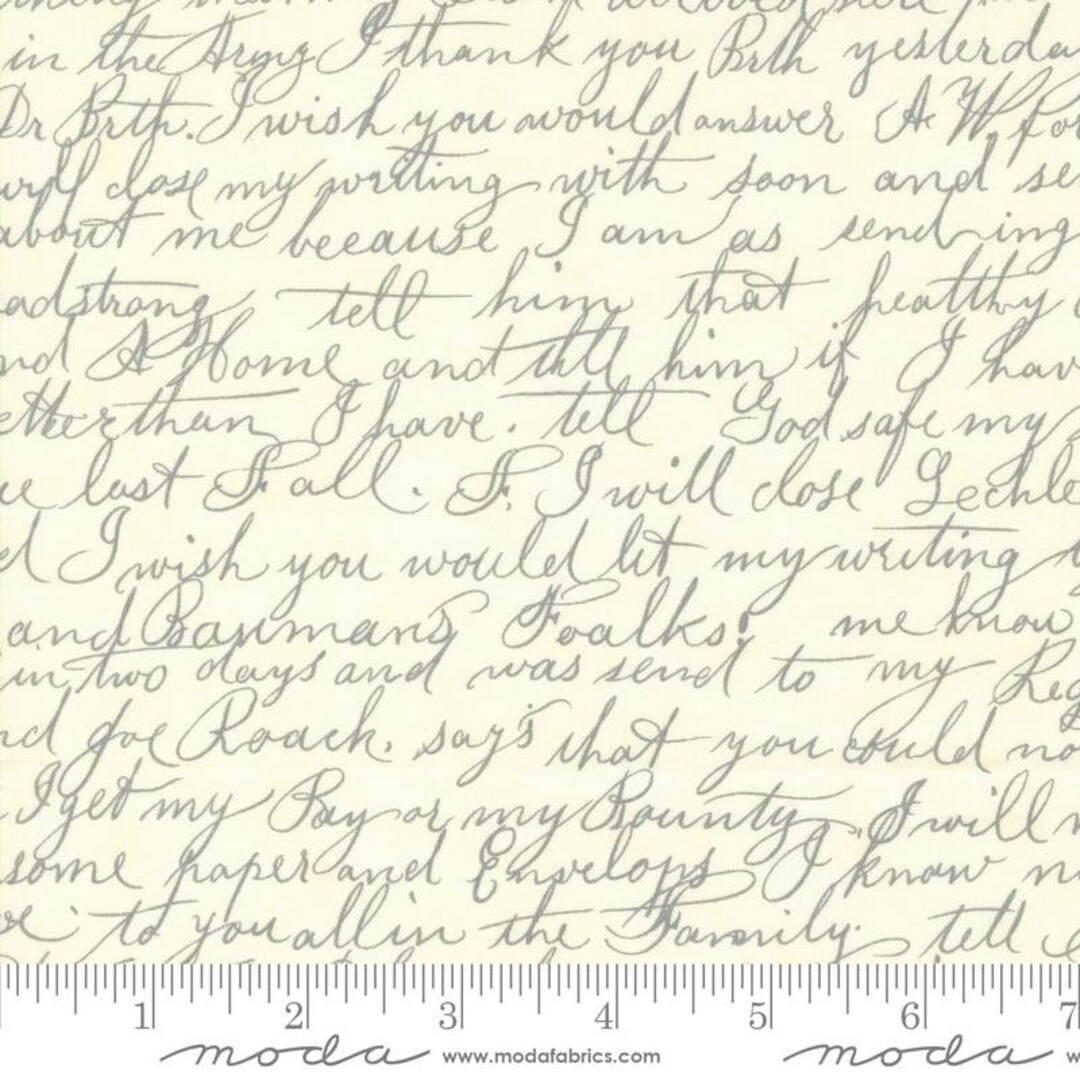 in the Army I thank you Brth yesterda
Dr Brth. I wish you would answer A W. for
will close my writing with soon and se
about me beeause I am as send ing
adstrong tell him that heatthy
nd A Home and till him if I hav
etter than I have. tell God safe my
ue last Fall. F. I will close Lechle
d I wish you would let my writing
and Bauman's Foalks! me know
in two days and was send to my Reg
nd Joe Roach. say's that you could no
I get my Pay or my Bounty. I will n
some paper and Envelops I know n
to you all in the Family. tell
1 2 3 4 5 6 7
moda www.modafabrics.com moda w